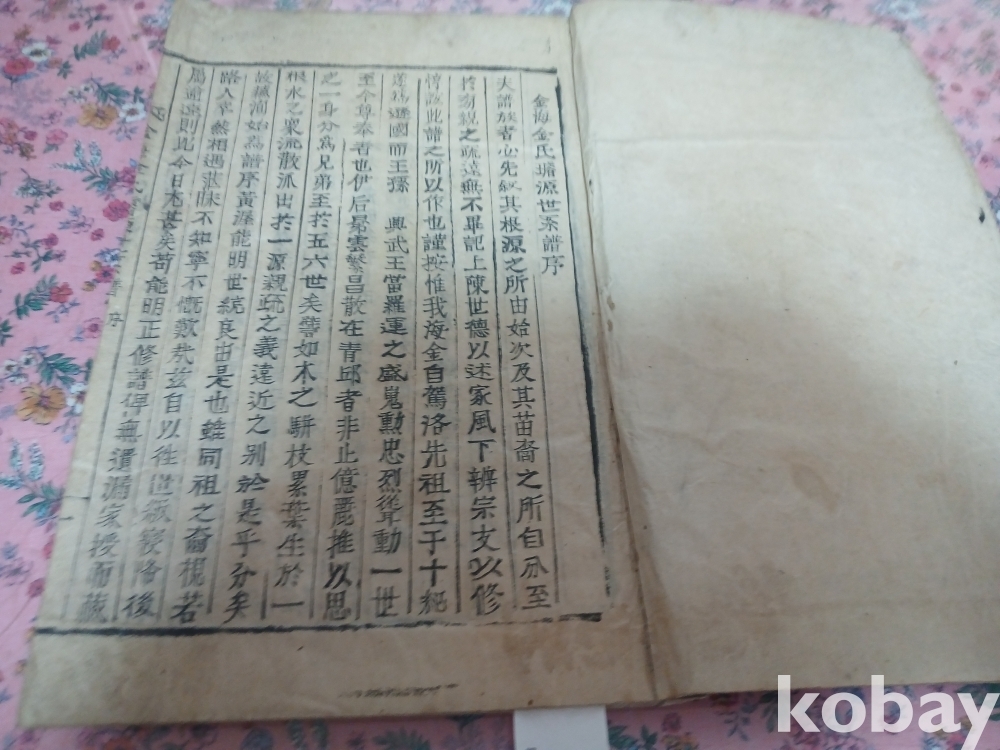 金海金氏璿源世系譜序
夫譜族者必先叙其根源之所由始次及其苗裔之所自分至
於勿親之疏遠無不畢記上陳世德以述家風下辨宗支以修
惇此譜之所以作也謹按惟我海金自駕洛先祖至于十紀
遂爲遜國而王孫 興武王當羅運之盛嵬勳忠烈聳動一世
至今尊奉者也伊后雲繁昌散在青邱者非止億麗推以思
之一身分爲兄弟至於五六世矣譬如木之騈枝累葉生於一
根水之衆流散派出於一源親疏之義遠近之別於是乎分矣
故蘓洵始爲譜序黃渥能明世統良由是也雖同祖之裔視若
路人卒然相遇茫昧不知寧不慨歎哉玆自以徃世級寖降後
屬逾遠則比今日尤甚矣苟能明正修譜俾無遺漏家授而藏
序
kobay